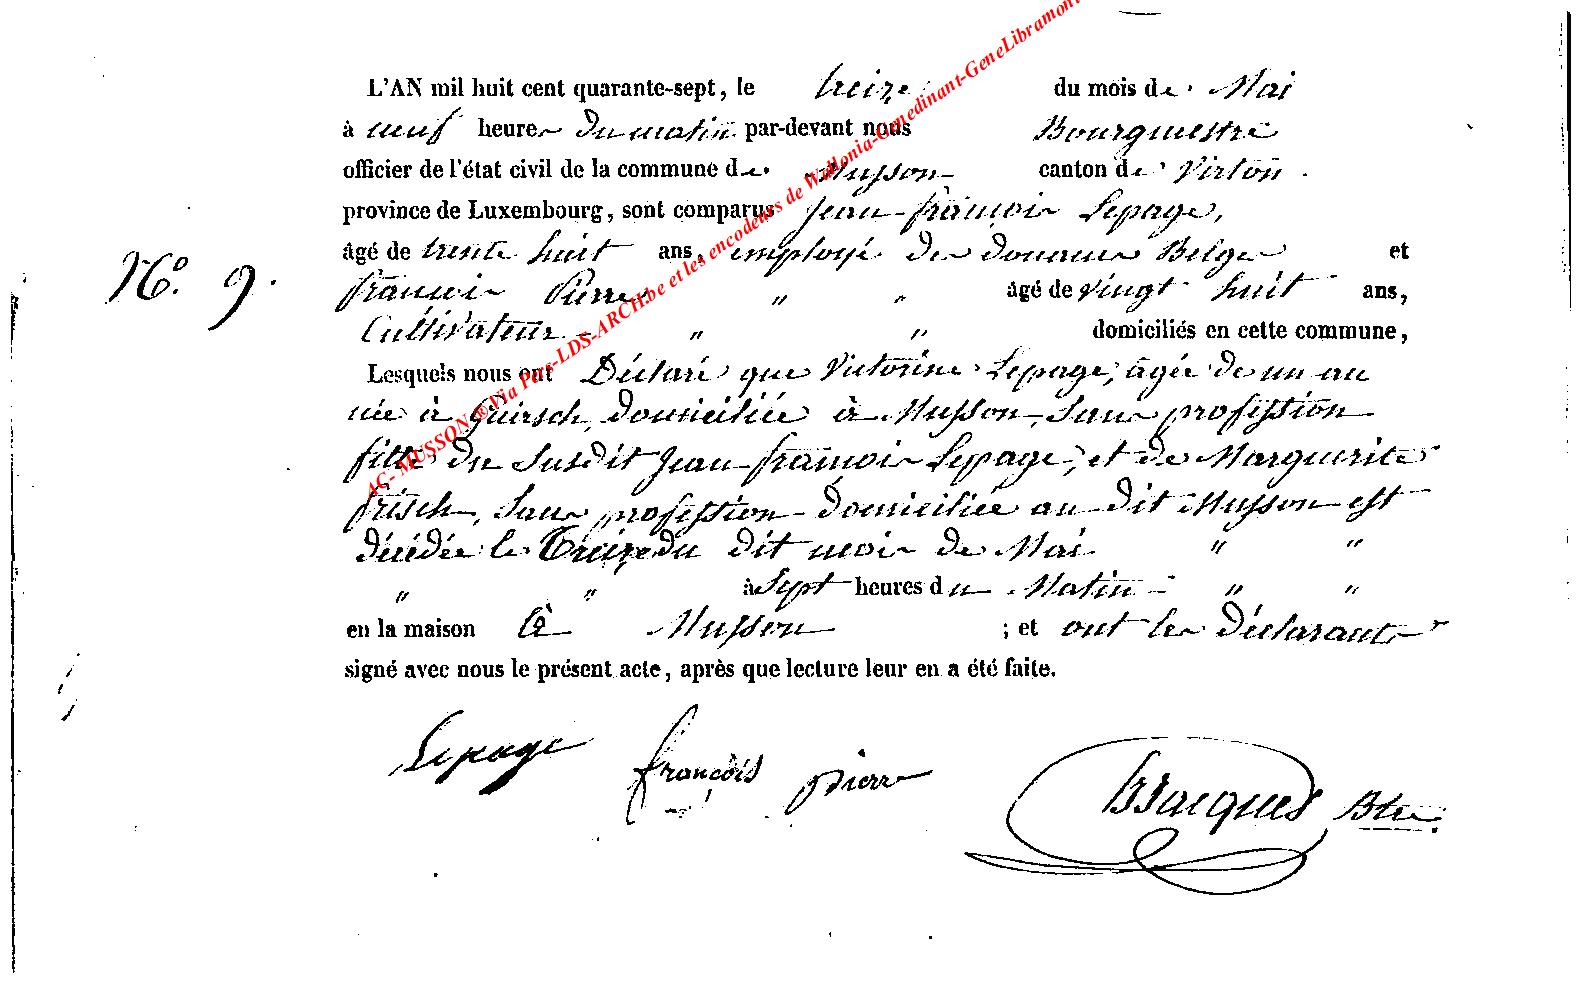 L'AN mil huit cent quarante-sept, le treize du mois de Mai
à neuf heures du matin par-devant nous Bourgmestre
officier de l'état civil de la commune de Musson canton de Virton.
province de Luxembourg, sont comparus Jean-françois Lepage,
âgé de trente huit ans, employé des douanes Belges et
N.º 9.
françois Pierre " " âgé de vingt huit ans,
Cultivateur " " domiciliés en cette commune,
Lesquels nous ont Déclaré que Victorine Lepage, agée de un an
née à Guirsch, domiciliée à Musson, sans profession
fille du susdit Jean-françois Lepage, et de Marguerite
frisch, sans profession domiciliée au dit Musson est
décédée le Treize du dit mois de Mai " "
" " à Sept heures du Matin " "
en la maison à Musson ; et ont les déclarants
signé avec nous le présent acte, après que lecture leur en a été faite.
Lepage françois pierre Jacques Btre.
AG-MUSSON ® Via Pus-LDS-ARCH.be et les encodeurs de Wallonia-Genedinant-GeneLibramont